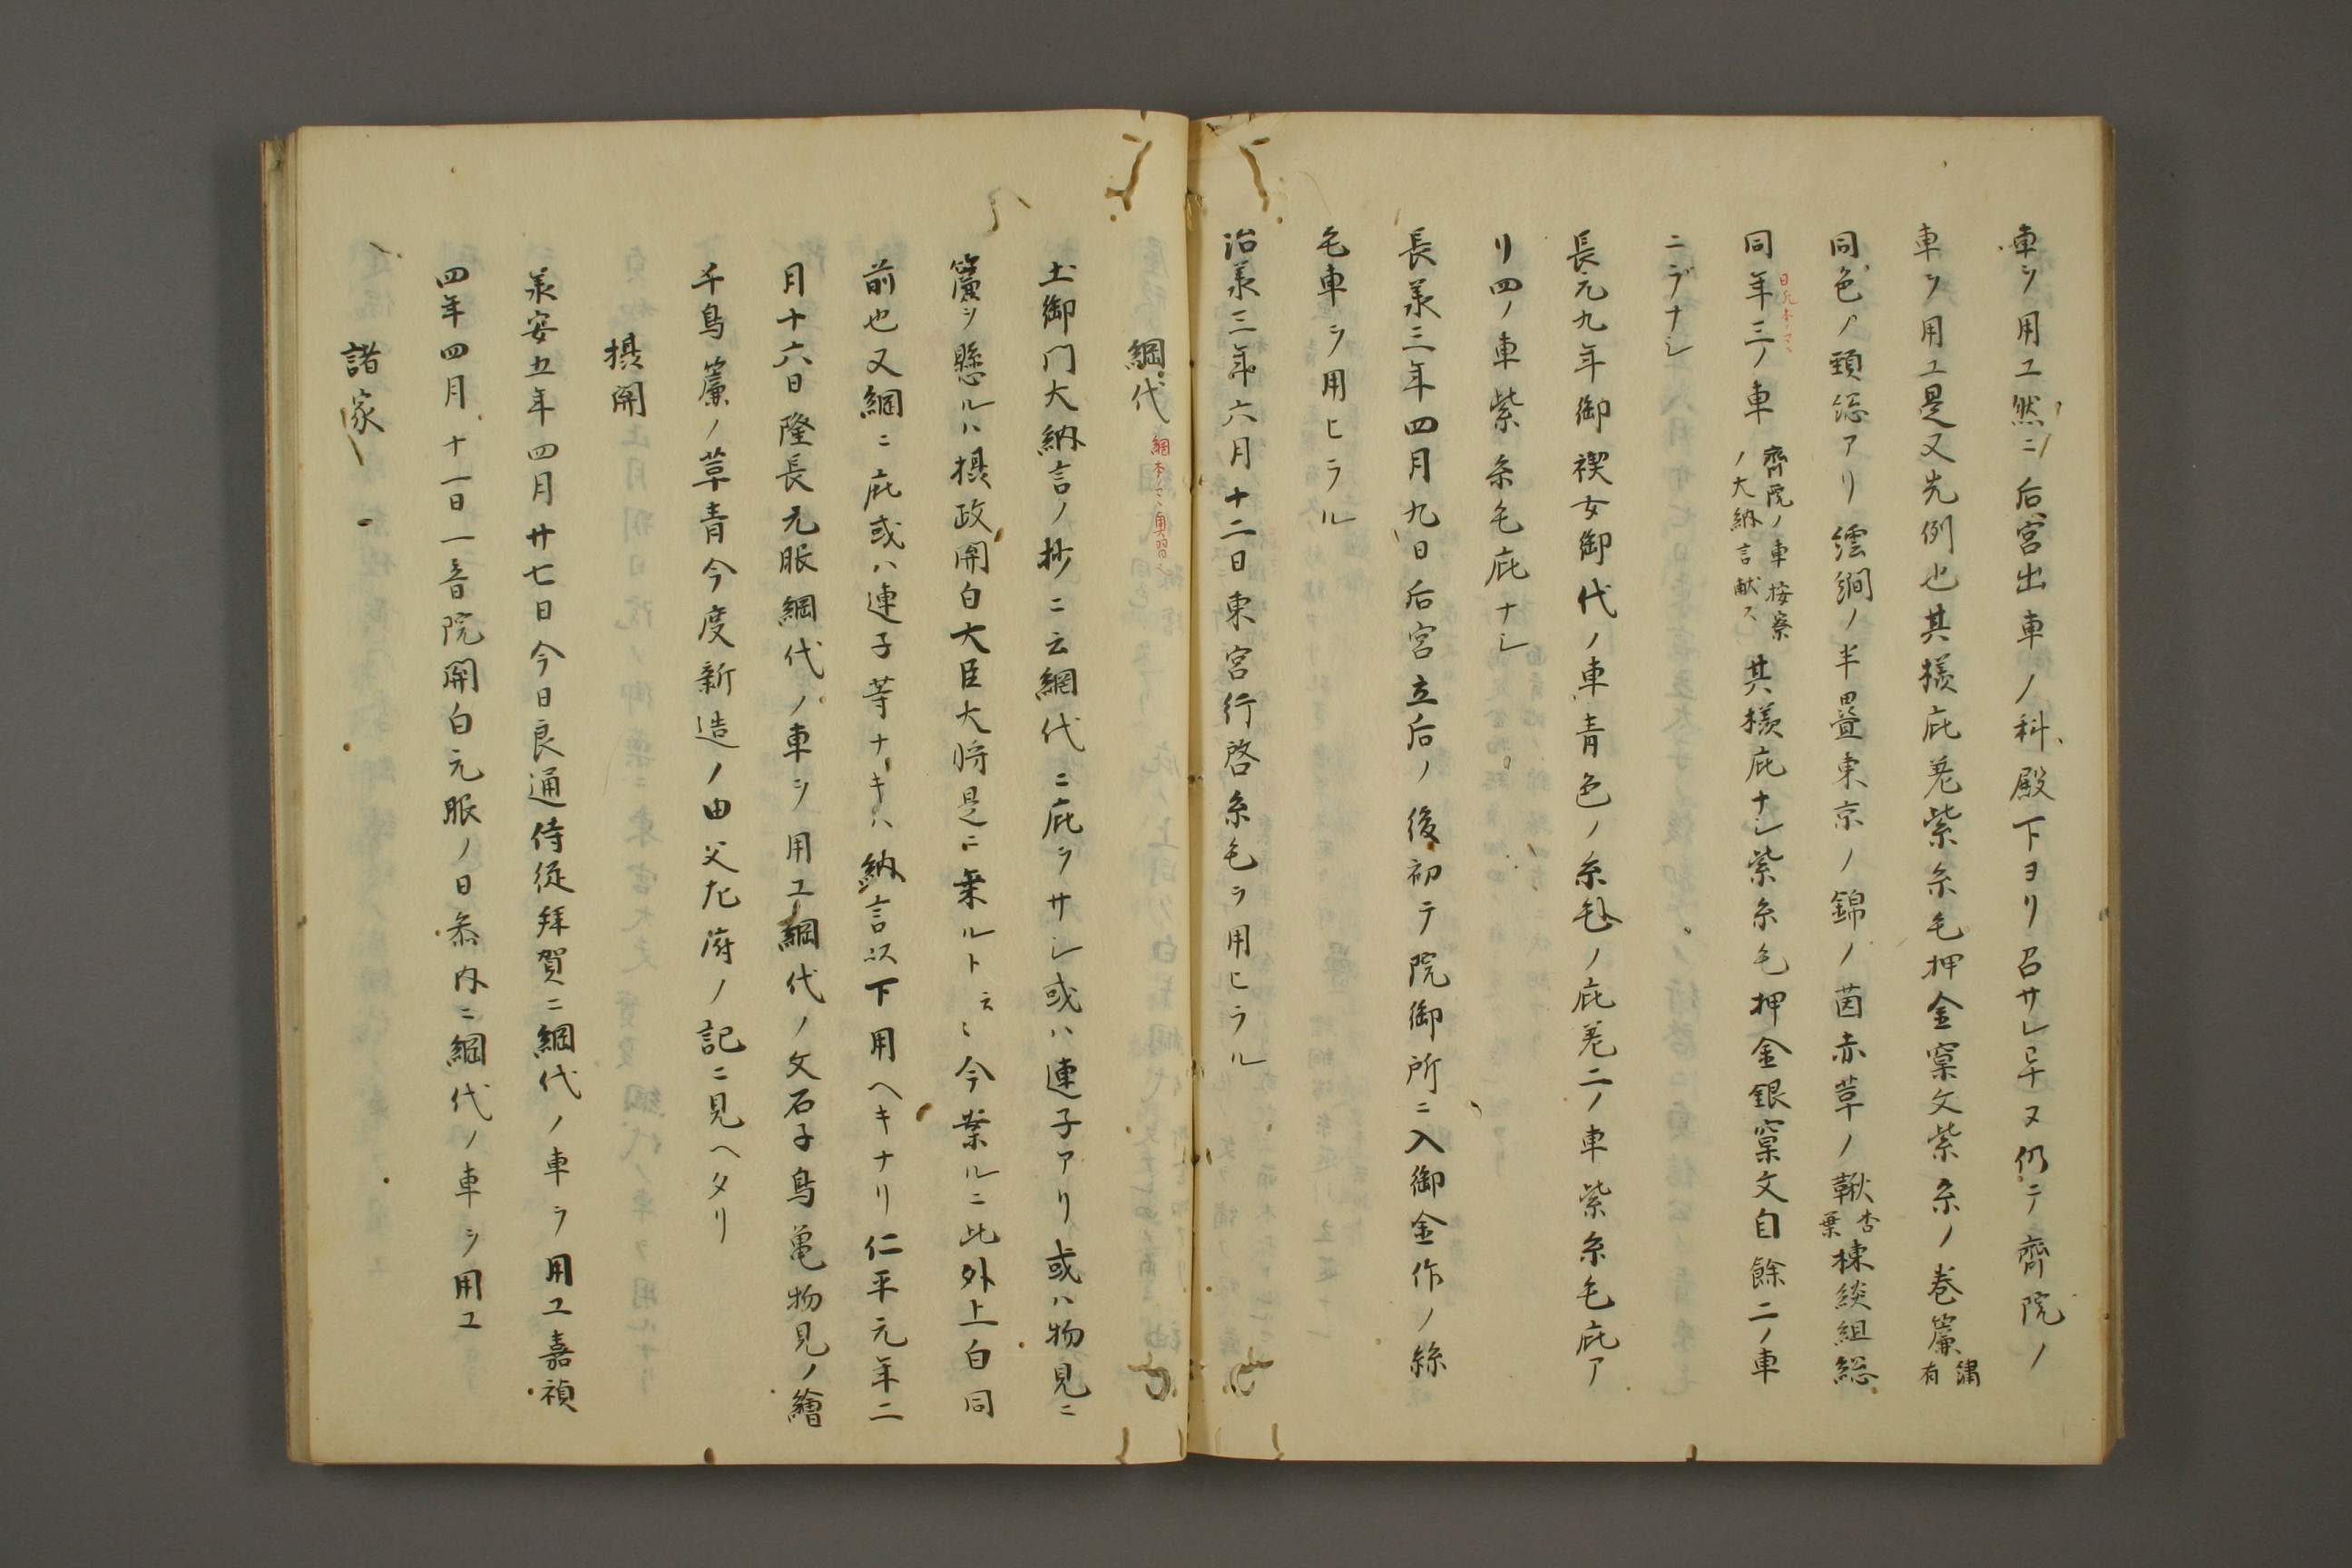 車ヲ用ユ然ニ后宮出車ノ科殿下ヨリ召サレ畢ヌ仍テ齊院ノ
車ヲ用ユ是又先例也其様庇差紫糸毛押金窠文紫糸ノ巻簾有繍
同色ノ頸総アリ繧繝ノ半畳東京ノ錦ノ茵赤草ノ鞦杏葉棟緂組総
同年三ノ車齊院ノ車按察ノ大納言献ス其様庇ナシ紫糸毛押金銀窠文自餘二ノ車
ニヲナシ
長元九年御禊女御代ノ車青色ノ糸毛ノ庇差二ノ車紫糸毛庇ア
リ四ノ車紫糸毛庇ナシ
長羕三年四月九日后宮立后ノ後初テ院御所ニ入御金作ノ絲
毛車ヲ用ヒラル
治羕三年六月十二日東宮行啓糸毛ヲ用ヒラル
綱代
土御門大納言ノ抄ニ云綱代ニ庇ヲサシ或ハ連子アリ或ハ物見ニ
簾ヲ懸ルハ摂政関白大臣大将是ニ乗ルト云々今案ルニ此外上白同
前也又綱ニ庇或ハ連子等ナキハ納言以下用ヘキナリ仁平元年二
月十六日隆長元服綱代ノ車ヲ用ユ綱代ノ文石子鳥亀物見ノ繪
千鳥簾ノ草青今度新造ノ由父左府ノ記ニ見ヘタリ
摂関
羕安五年四月廿七日今日良通侍従拜賀ニ綱代ノ車ヲ用ユ嘉禎
四年四月十一日一音院関白元服ノ日参内ニ綱代ノ車ヲ用ユ
諸家